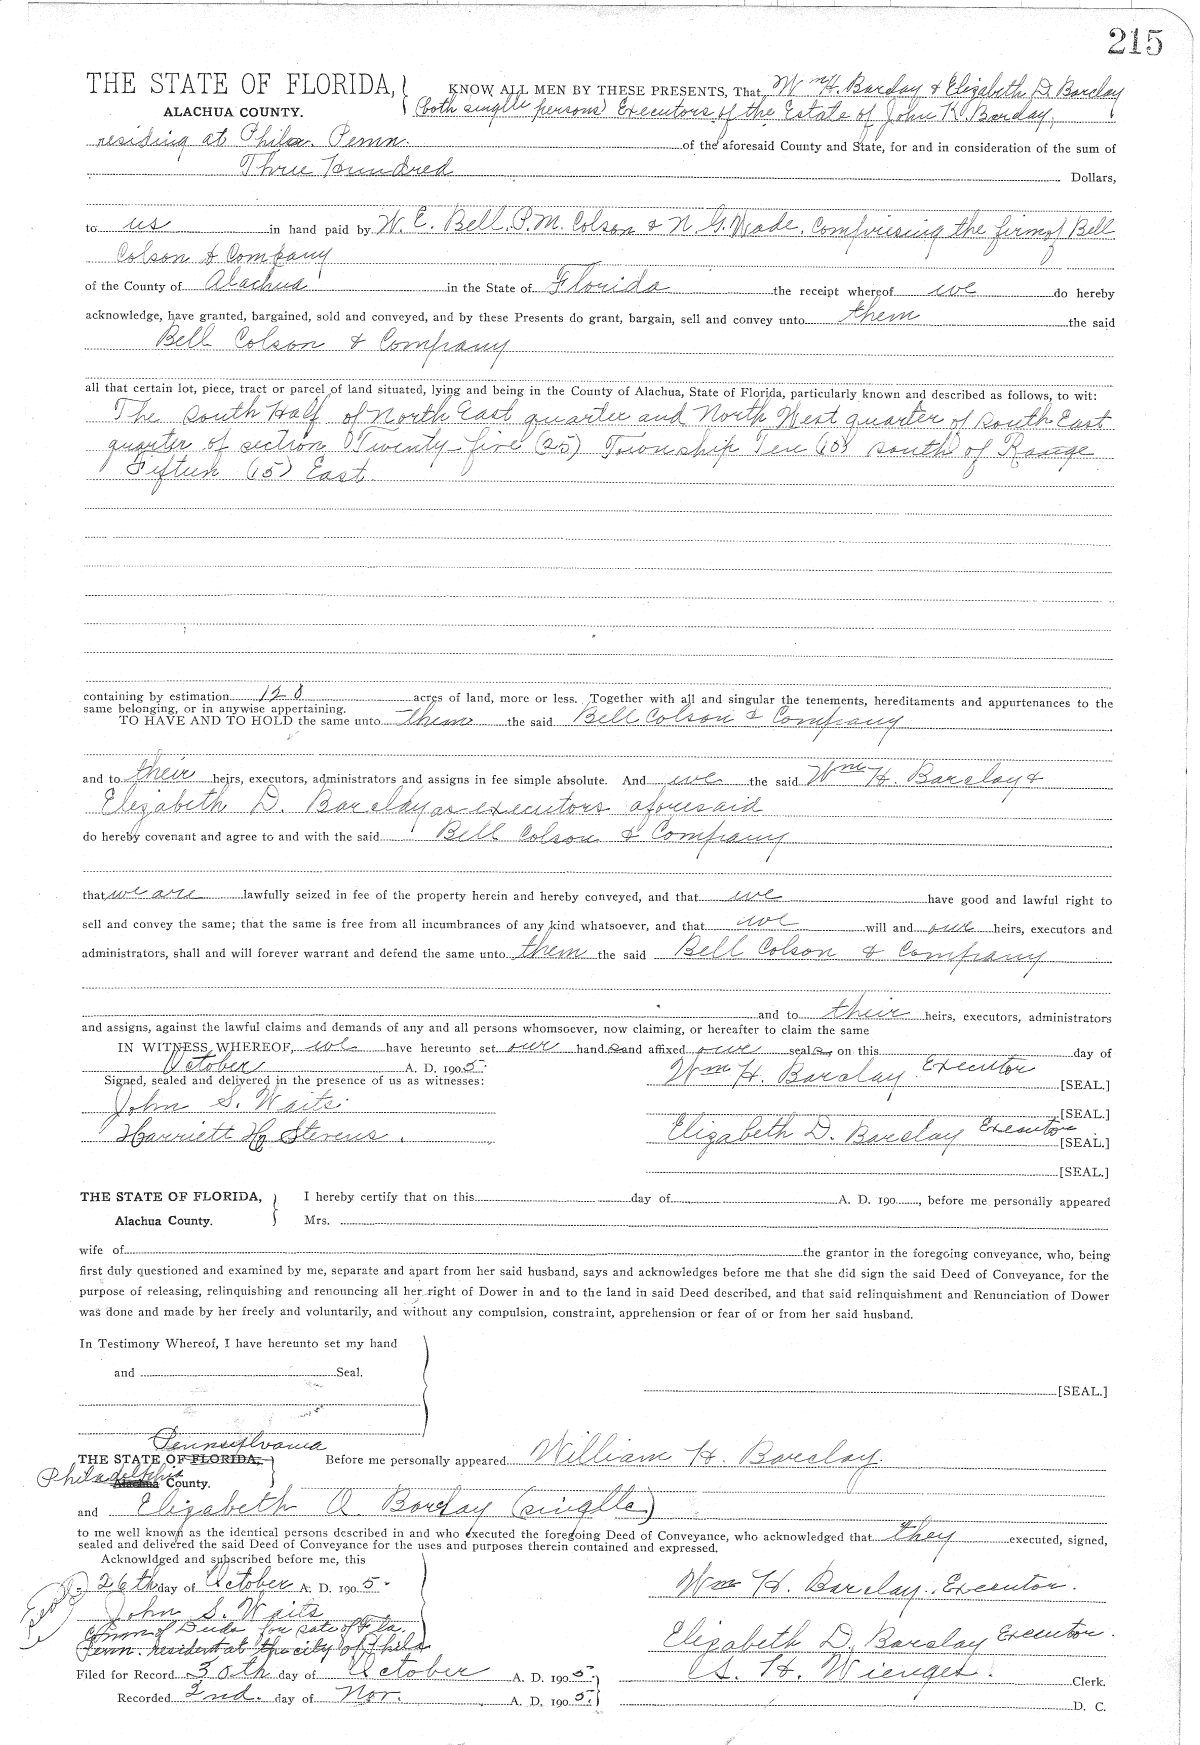 215
THE STATE OF FLORIDA, KNOW ALL MEN BY THESE PRESENTS, That Wm H. Barclay & Elizabeth D Barclay
ALACHUA COUNTY. (both singlle persons) Executors of the Estate of John K. Barclay,
residing at Phila. Penn. of the aforesaid County and State, for and in consideration of the sum of
Three Hundred Dollars,
to us in hand paid by W. E. Bell, P. M. Colson & N. G. Wade, Comprising the firm of Bell
Colson & Company
of the County of Alachua in the State of Florida the receipt whereof we do hereby
acknowledge, have granted, bargained, sold and conveyed, and by these Presents do grant, bargain, sell and convey unto them the said
Bell Colson & Company
all that certain lot, piece, tract or parcel of land situated, lying and being in the County of Alachua, State of Florida, particularly known and described as follows, to wit:
The South Half of North East quarter and North West quarter of South East
quarter of section Twenty five (25) Township Ten (10) south of Range
Fifteen (15) East.
containing by estimation 120 acres of land, more or less. Together with all and singular the tenements, hereditaments and appurtenances to the
same belonging, or in anywise appertaining.
TO HAVE AND TO HOLD the same unto them the said Bell Colson & Company
and to their heirs, executors, administrators and assigns in fee simple absolute. And we the said Wm H. Barclay &
Elizabeth D. Barclay as executors aforesaid
do hereby covenant and agree to and with the said Bell Colson & Company
that we are lawfully seized in fee of the property herein and hereby conveyed, and that we have good and lawful right to
sell and convey the same; that the same is free from all incumbrances of any kind whatsoever, and that we will and our heirs, executors and
administrators, shall and will forever warrant and defend the same unto them the said Bell Colson & Company
and to their heirs, executors, administrators
and assigns, against the lawful claims and demands of any and all persons whomsoever, now claiming, or hereafter to claim the same
IN WITNESS WHEREOF, we have hereunto set our hands and affixed our seals, on this day of
October A. D. 1905. Wm H. Barclay Executor [SEAL.]
Signed, sealed and delivered in the presence of us as witnesses:
John S. Waits. [SEAL.]
Harriett H Stevens. Elizabeth D. Barclay Executor. [SEAL.]
[SEAL.]
THE STATE OF FLORIDA, I hereby certify that on this day of A. D. 190 , before me personally appeared
Alachua County. Mrs.
wife of the grantor in the foregoing conveyance, who, being
first duly questioned and examined by me, separate and apart from her said husband, says and acknowledges before me that she did sign the said Deed of Conveyance, for the
purpose of releasing, relinquishing and renouncing all her right of Dower in and to the land in said Deed described, and that said relinquishment and Renunciation of Dower
was done and made by her freely and voluntarily, and without any compulsion, constraint, apprehension or fear of or from her said husband.
In Testimony Whereof, I have hereunto set my hand
and Seal.
[SEAL.]
Pennsylvania
THE STATE OF FLORIDA, Before me personally appeared William H. Barclay.
Philadelphia Alachua County.
and Elizabeth D. Barclay (singlle)
to me well known as the identical persons described in and who executed the foregoing Deed of Conveyance, who acknowledged that they executed, signed,
sealed and delivered the said Deed of Conveyance for the uses and purposes therein contained and expressed.
Acknowldged and subscribed before me, this
26th day of October A. D. 1905. Wm H. Barclay. Executor.
John S. Waits
Comm of Deeds for state of Fla. Elizabeth D. Barclay Executor.
Penn. resident at the city of Phila
Filed for Record 30th day of October A. D. 1905. S. H. Wienges. Clerk.
Recorded 2nd. day of Nov. A. D. 1905. D. C.